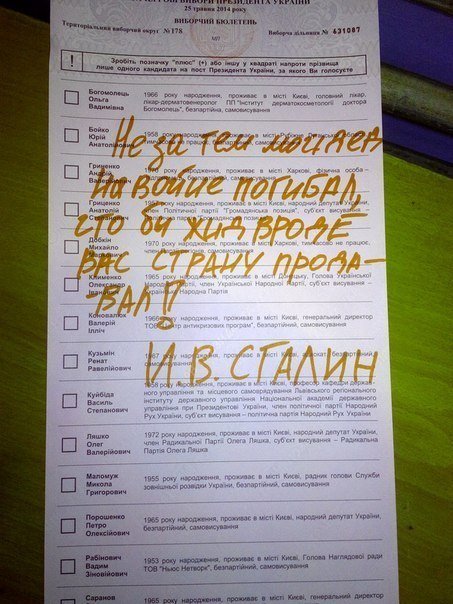 ЧЕРГОВІ ВИБОРИ ПРЕЗИДЕНТА УКРАЇНИ
25 травня 2014 року
ВИБОРЧИЙ БЮЛЕТЕНЬ
Територіальний виборчий округ №178
МП
Виборча дільниця № 631087
! Зробіть позначку "плюс" (+) або іншу у квадраті напроти прізвища
лише одного кандидата на пост Президента України, за якого Ви голосуєте
Богомолець
Ольга
Вадимівна
1966 року народження, проживає в місті Києві, головний лікар,
лікар-дерматовенеролог ПП "Інститут дерматокосметології доктора
Богомолець", безпартійна, самовисування
Бойко
Юрій
Анатолійович
1958 року народження, проживає в
Гриненко
1970 року народження, проживає в місті Харкові, фізична особа –
Гриценко
Анатолій
1957 року народження, проживає в місті Києві, народний депутат України,
член Політичної партії "Громадянська позиція", суб'єкт висування –
Добкін
Михайло
1970 року народження, проживає в місті Харкові, тимчасово не працює,
Клименко
Олександр
1965 року народження, проживає в місті Донецьку, Голова Української
Народної Партії, член Української Народної Партії, суб'єкт висування –
Українська Народна Партія
Коновалюк
Валерій
Ілліч
1966 року народження, проживає в місті Києві, генеральний директор
ТОВ "Центр антикризових програм", безпартійний, самовисування
Кузьмін
Ренат
Равелійович
1967 року народження, проживає в місті Києві, адвокат, безпартійний,
самовисування
Куйбіда
Василь
Степанович
1958 року народження, проживає в місті Києві, професор кафедри держав-
ного управління та місцевого самоврядування Львівського регіонального
інституту державного управління Національної академії державного
управління при Президентові України, член політичної партії Народний
Рух України, суб'єкт висування – політична партія Народний Рух України
Ляшко
Олег
Валерійович
1972 року народження, проживає в місті Києві, народний депутат України,
член Радикальної Партії Олега Ляшка, суб'єкт висування – Радикальна
Партія Олега Ляшка
Маломуж
Микола
Григорович
1955 року народження, проживає в місті Києві, радник голови Служби
зовнішньої розвідки України, безпартійний, самовисування
Порошенко
Петро
Олексійович
1965 року народження, проживає в місті Києві, народний депутат України,
безпартійний, самовисування
Рабінович
Вадим
Зіновійович
1953 року народження, проживає в місті Києві, Голова Наглядової ради
ТОВ "Ньюс Нетворк", безпартійний, самовисування
Саранов
1965 року народження, проживає в місті Києві, генеральний директор
Не за тем мой дед
на войне погибал,
что би жид вроде
вас страну прода-
-вал!!
И.В. СТАЛИН